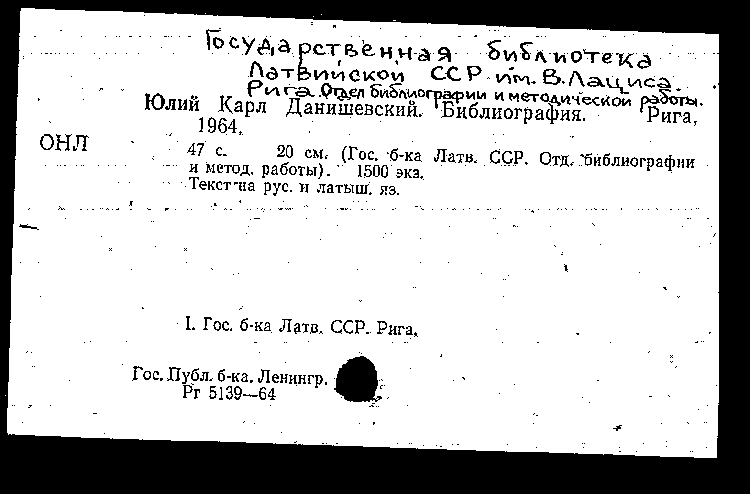 Государственная библиотека
Латвийской ССР им. В. Лациса.
Рига. Отдел библиографии и методической работы.
Юлий Карл Данишевский. Библиография. Рига,
1964.
ОНЛ
47 с. 20 см. (Гос. б-ка Латв. ССР. Отд. библиографии
и метод. работы). 1500 экз.
Текст на рус. и латыш. яз.
I. Гос. б-ка Латв. ССР. Рига.
Гос. Публ. б-ка. Ленингр.
Рг 5139—64